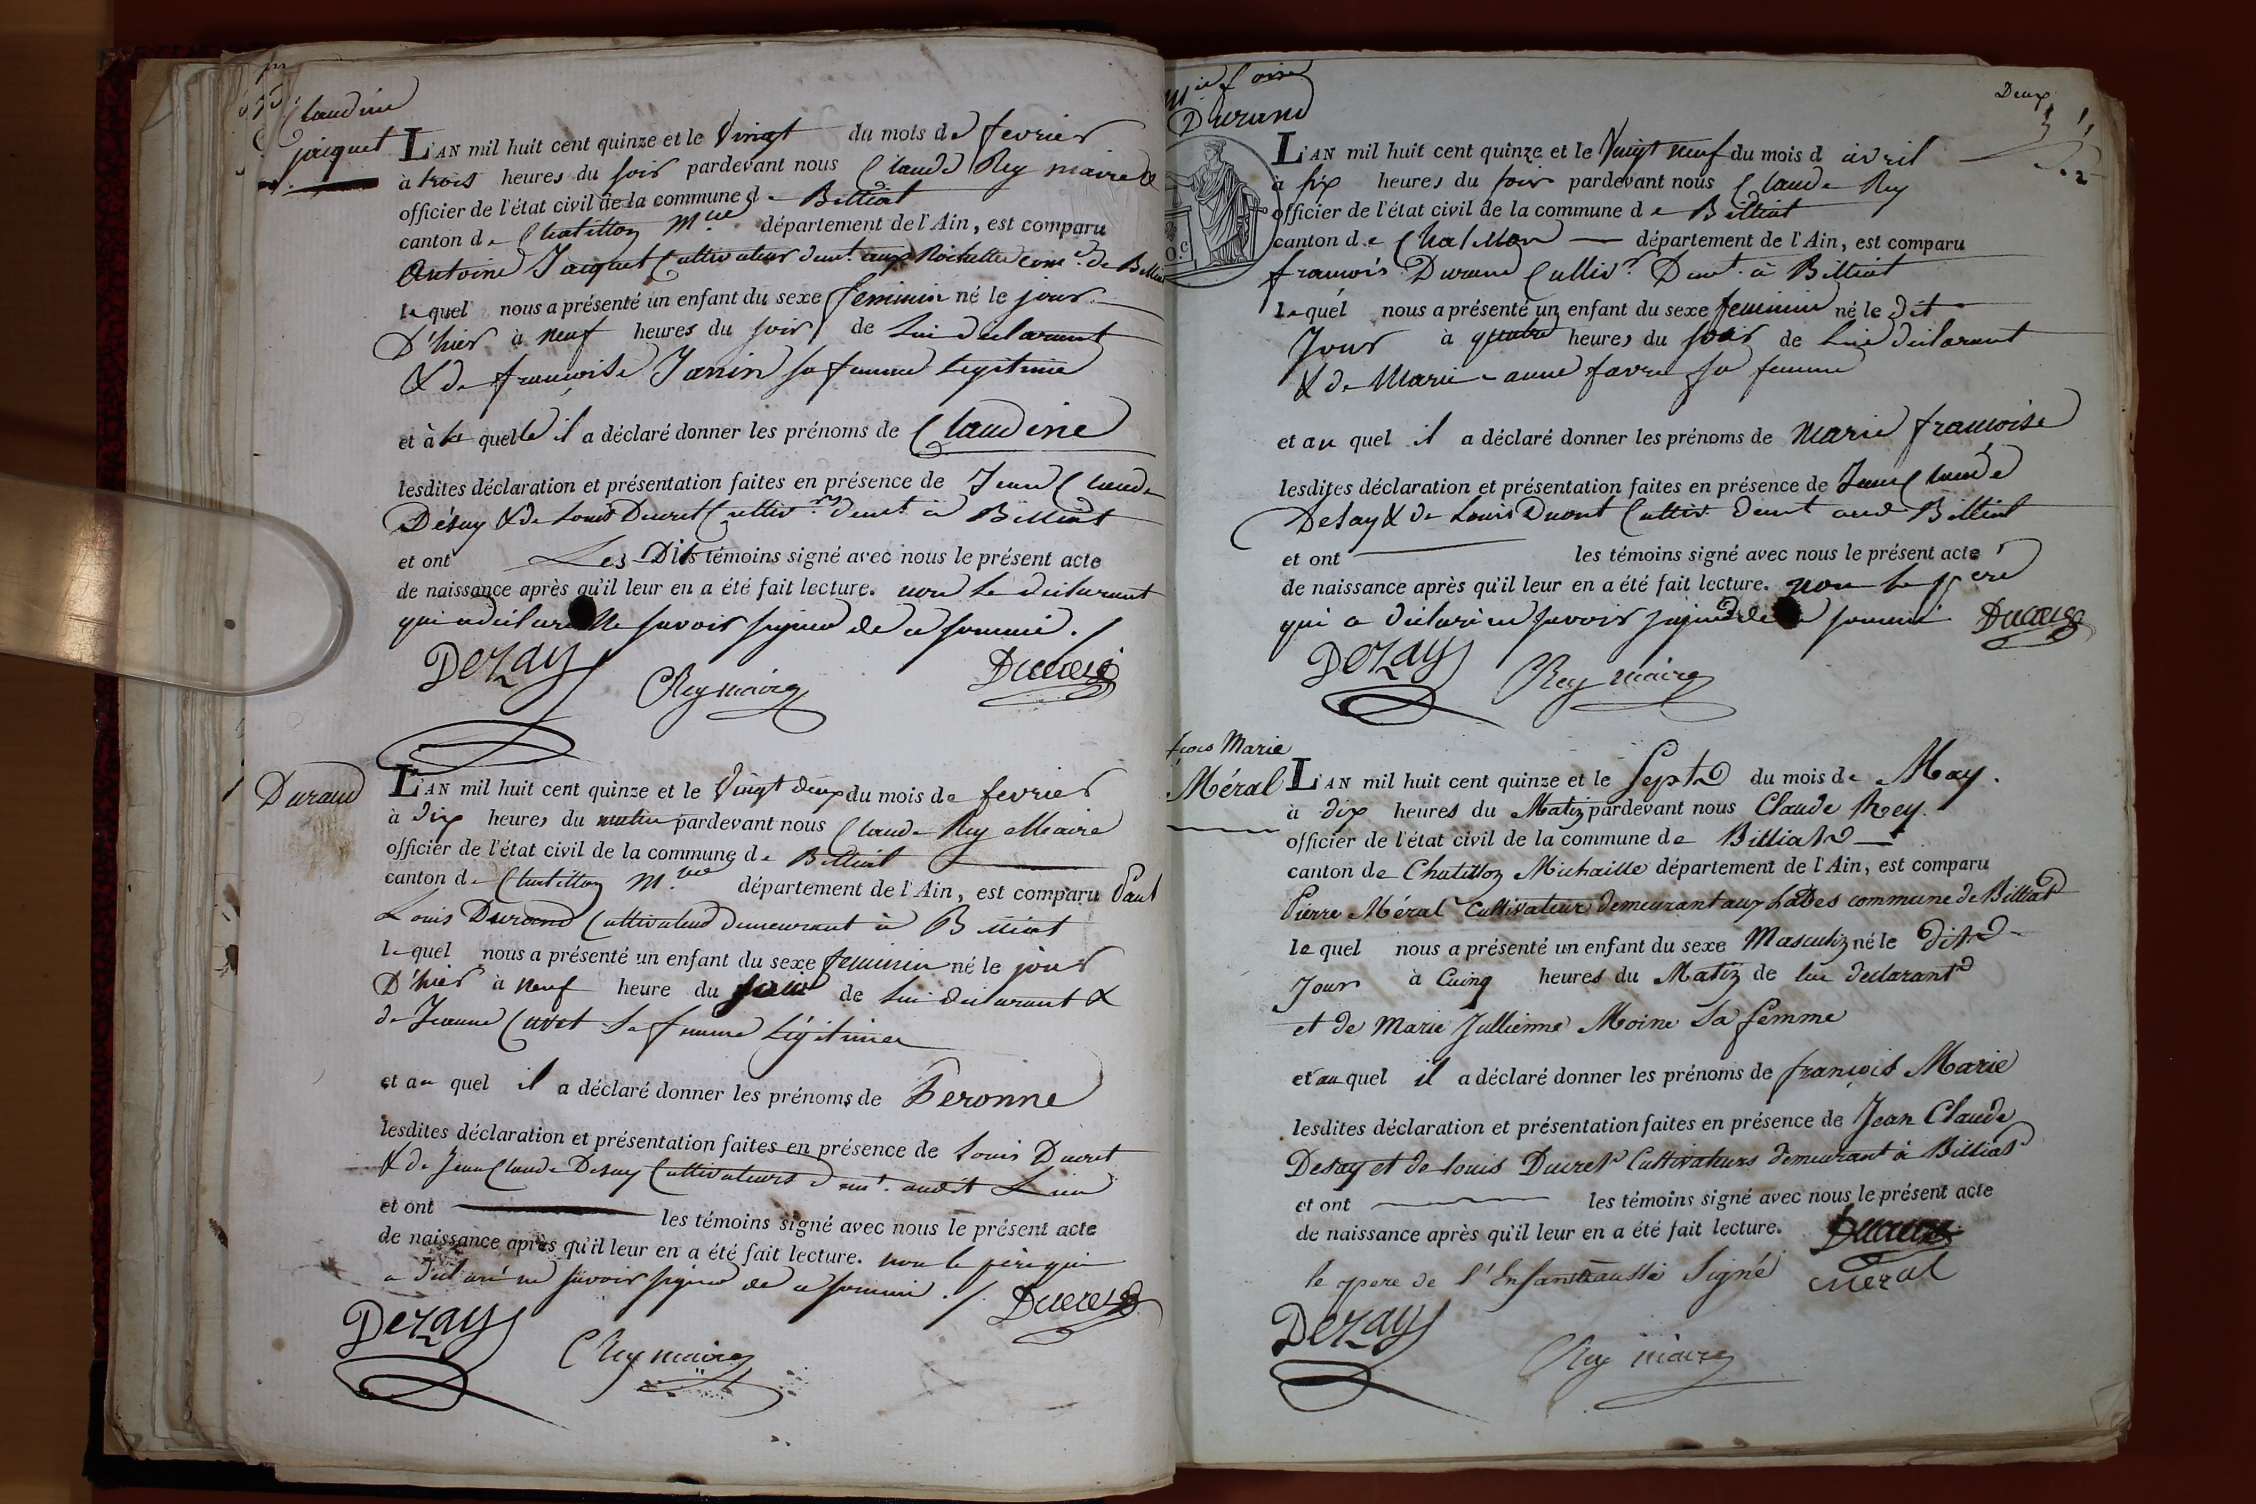 Claudine
jacquet
L'AN mil huit cent quinze et le Vingt du mois de fevrier
à trois heures du soir pardevant nous Claude Rey maire &
officier de l'état civil de la commune de Billiat
canton de Chatillon Mlle département de l'Ain, est comparu
Antoine Jacquet Cultivateur demt. aux Rochettes come. de Billiat
lequel nous a présenté un enfant du sexe feminin né le jour
D'hier à neuf heures du soir de lui declarant
& de francoise Janin sa femme Legitime
et à la quelle il a déclaré donner les prénoms de Claudine
lesdites déclaration et présentation faites en présence de Jean Claude
Désay & de Louis Ducret Cultivrs demt à Billiat
et ont Les Dits témoins signé avec nous le présent acte
de naissance après qu'il leur en a été fait lecture. non le declarant
qui a declaré ne savoir signer de ce sommé ./
Dezay CRey maire Ducret
Durand
L'AN mil huit cent quinze et le Vingt deux du mois de fevrier
à dix heures du matin pardevant nous Claude Rey Maire
officier de l'état civil de la commune de Billiat
canton de Chatillon Mlle département de l'Ain, est comparu Paul
Louis Durand Cultivateur demeurant à Billiat
lequel nous a présenté un enfant du sexe feminin né le jour
D'hier à neuf heure du soir de lui declarant &
de Jeanne Cuvet Sa femme Légitime
et au quel il a déclaré donner les prénoms de Peronne
lesdites déclaration et présentation faites en présence de Louis Ducret
& de Jean Claude Desay Cultivateurs demt. audit Lieu
et ont les témoins signé avec nous le présent acte
de naissance après qu'il leur en a été fait lecture. non le père qui
a declaré ne savoir signer de ce sommé ./.
Dezay CRey maire Ducret
Deux
2
Mie foise
Durand
L'AN mil huit cent quinze et le Vingt neuf du mois d avril
à six heures du soir pardevant nous Claude Rey
officier de l'état civil de la commune de Billiat
canton de Chatillon département de l'Ain, est comparu
francois Durand Cultivr. Demt. à Billiat
lequel nous a présenté un enfant du sexe feminin né le dit
Jour à quatre heures du soir de lui declarant
& de Marie-anne favre sa femme
et au quel il a déclaré donner les prénoms de marie francoise
lesdites déclaration et présentation faites en présence de Jean Claude
Desay & de Louis Ducret Cultiv. demt aud Billiat
et ont les témoins signé avec nous le présent acte
de naissance après qu'il leur en a été fait lecture. non le père
qui a declaré ne savoir signer de ce sommé Ducret
Dezay CRey maire
fçois Marie
Méral
L'AN mil huit cent quinze et le Sept du mois de May.
à dix heures du Matin pardevant nous Claude Rey.
officier de l'état civil de la commune de Billiat
canton de Chatillon Michaille département de l'Ain, est comparu
Pierre Méral Cultivateur demeurant aux Lades commune de Billiat
le quel nous a présenté un enfant du sexe Masculin né le dit
Jour à Cinq heures du Matin de lui declarant
et de Marie Jullienne Moine sa femme
et au quel il a déclaré donner les prénoms de françois Marie
lesdites déclaration et présentation faites en présence de Jean Claude
Desay et de Louis Ducret Cultivateurs demeurant à Billiat
et ont les témoins signé avec nous le présent acte
de naissance après qu'il leur en a été fait lecture. Ducret
le pere de l'Enfant a aussi Signé Meral
Dezay CRey maire